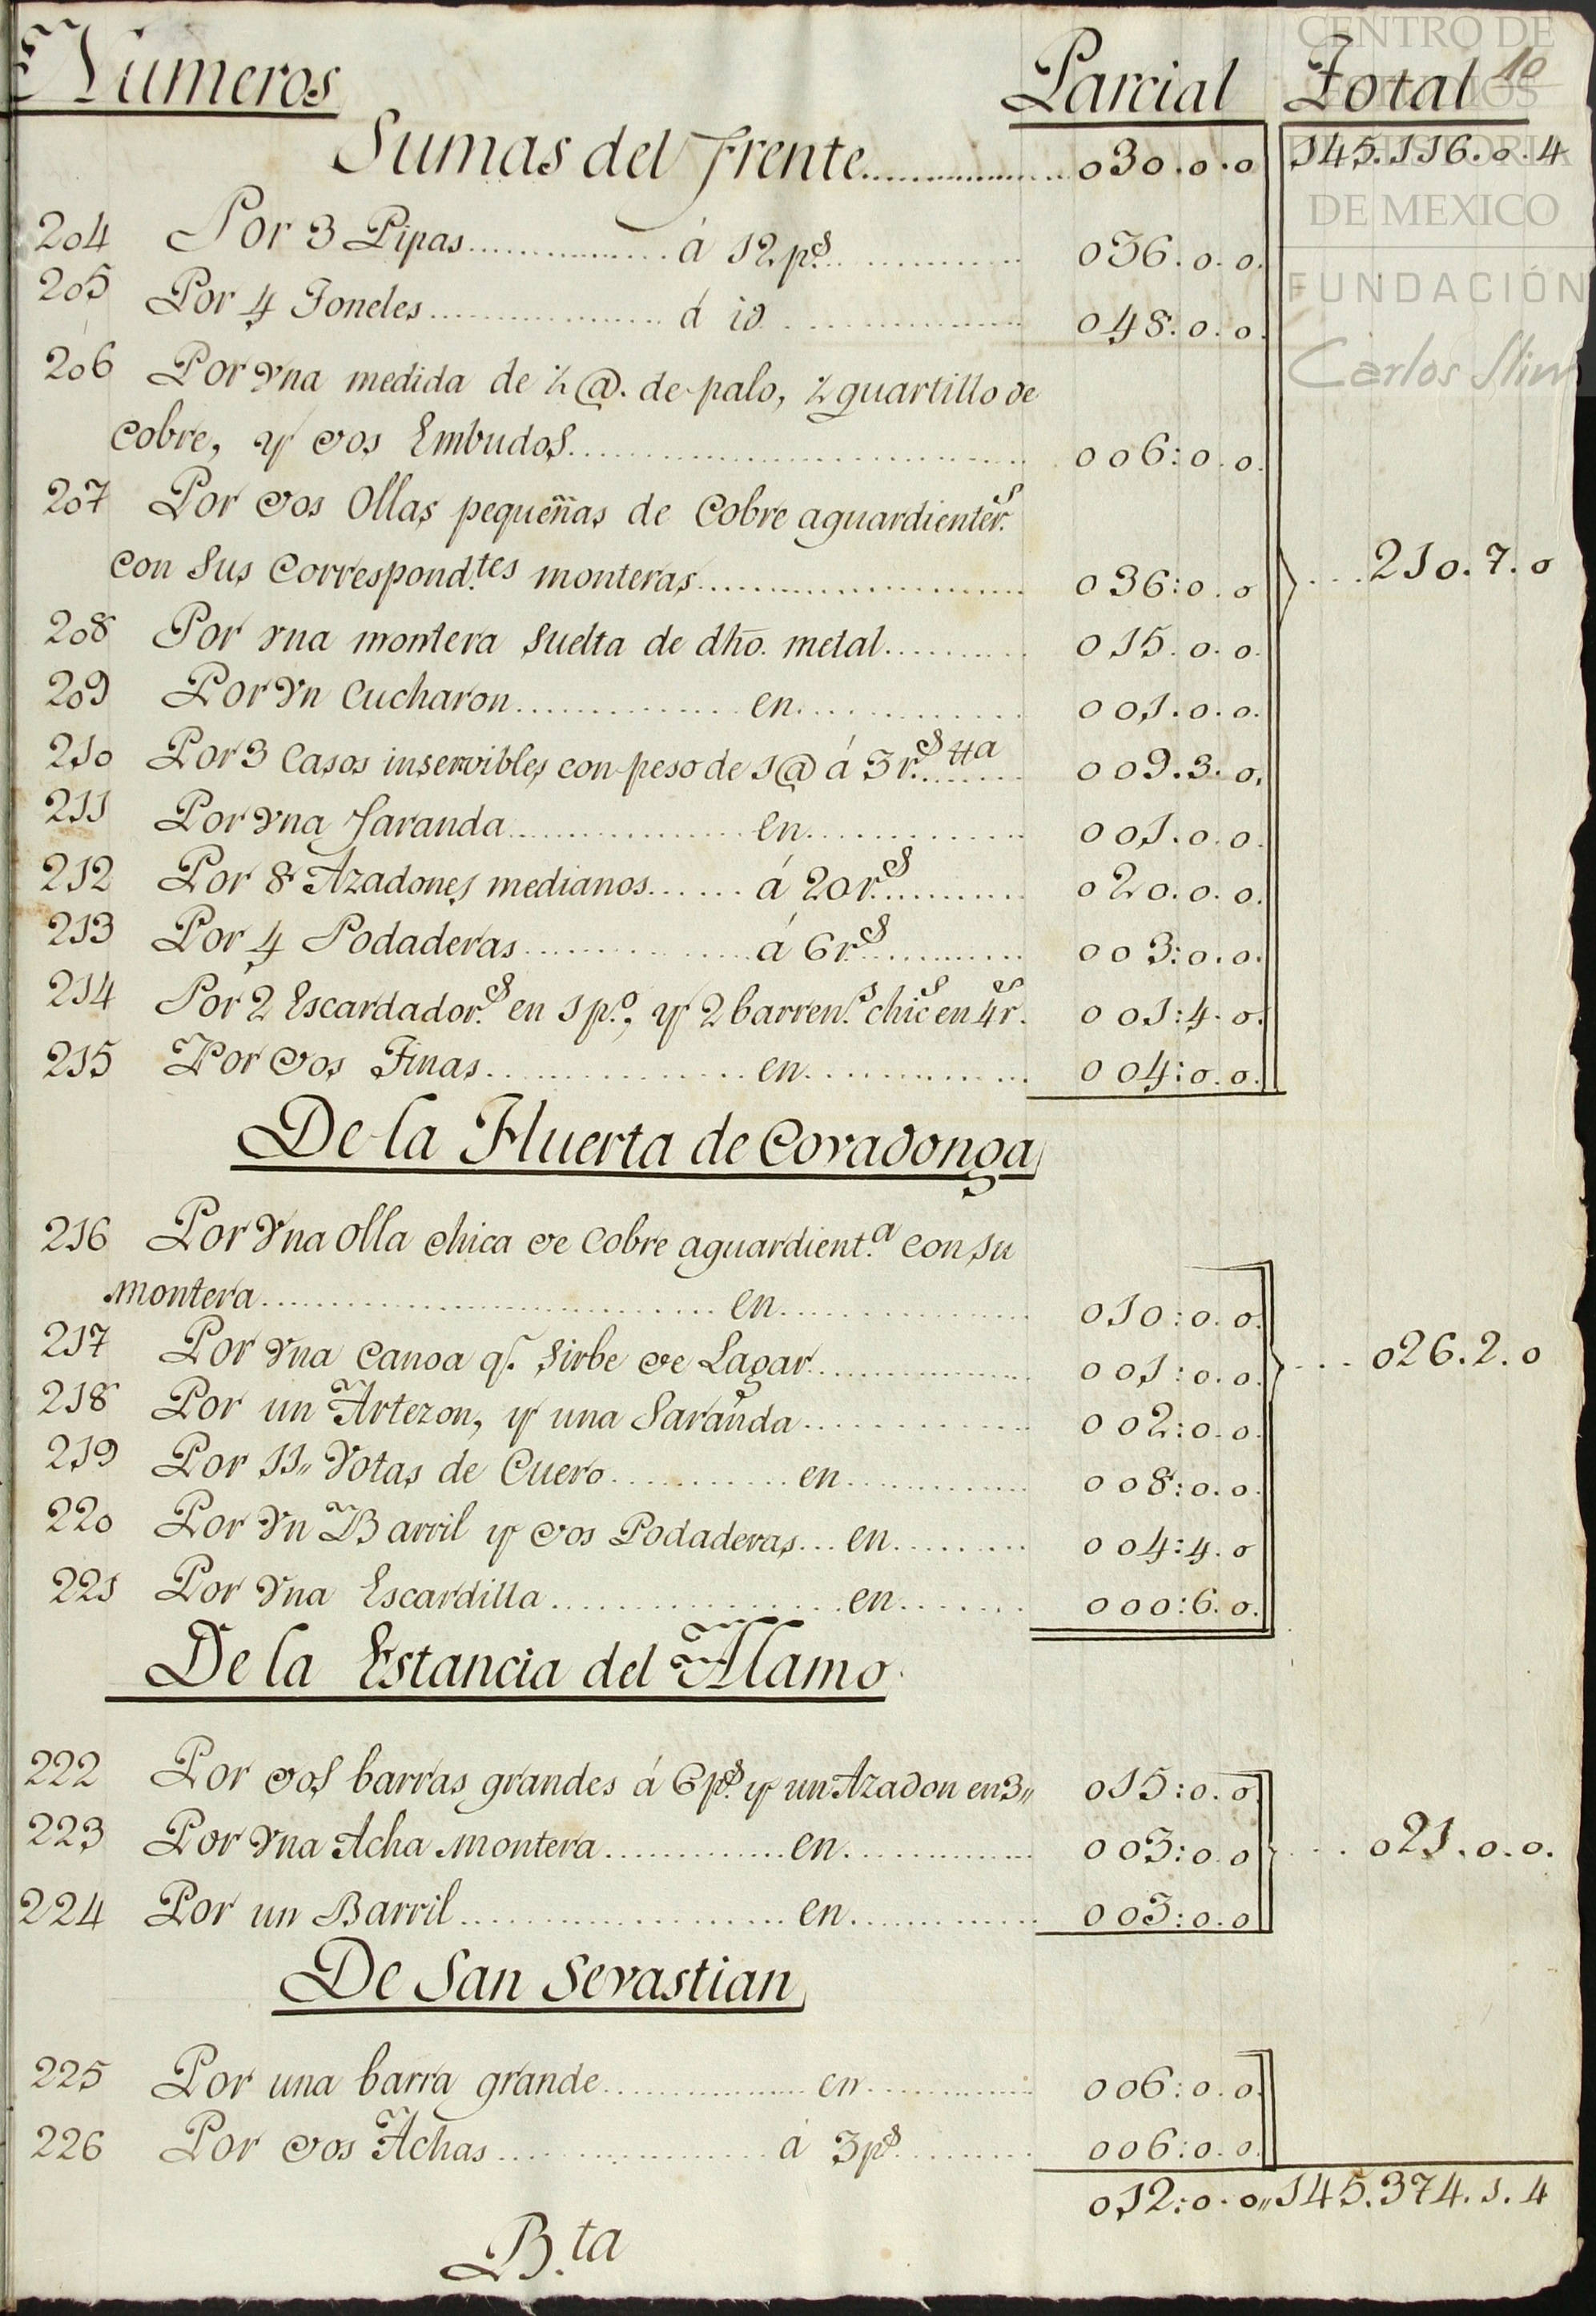 Numeros Parcial Total 10
Sumas del frente 030.0.0 145.116.0.4
204 Por 3 Pipas á 12 p.s 036.0.0.
205 Por 4 Toneles á id 048.0.0.
206 Por Vna medida de ½ @. de palo, ½ quartillo de
cobre, y dos Embudos 006:0.0.
207 Por dos Ollas pequeñas de Cobre aguardienter.s
con sus Correspond.tes monteras 036:0.0 210.7.0
208 Por vna montera suelta de dho. metal 015.0.0.
209 Por Vn Cucharon en 001.0.0.
210 Por 3 Casos inservibles con peso de 1 @ á 3 r.s tta 009.3.0.
211 Por Vna Saranda en 001.0.0.
212 Por 8 Azadones medianos á 20 r.s 020.0.0.
213 Por 4 Podaderas á 6 r.s 003:0.0.
214 Por 2 Escardador.s en 1 p.o, y 2 barren.s chic.s en 4 r.s 001:4.0.
215 Por dos Tinas en 004:0.0.
De la Huerta de Covadonga
216 Por Vna Olla chica de Cobre aguardient.a con su
montera en 010:0.0.
217 Por Vna canoa q.e sirbe de Lagar 001:0.0. 026.2.0
218 Por un Artezon, y una Saranda 002:0.0.
219 Por 11,, Votas de Cuero en 008:0.0.
220 Por Vn Barril y dos Podaderas en 004:4.0
221 Por Vna Escardilla en 000:6.0.
De la Estancia del Alamo
222 Por dos barras grandes á 6 p.s y un Azadon en 3,, 015:0.0.
223 Por Vna Acha montera en 003:0.0 021.0.0.
224 Por un Barril en 003:0.0
De San Sevastian
225 Por una barra grande en 006:0.0.
226 Por dos Achas á 3 p.s 006:0.0.
012:0.0,, 145.374.1.4
B.ta
CENTRO DE
ESTUDIOS
DE HISTORIA
DE MEXICO
FUNDACIÓN
Carlos Slim